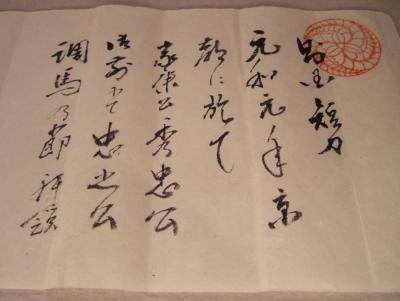 短刀
元和元年京
都に於て
家康公秀忠公
御前にて忠之公
調馬乃節拝領